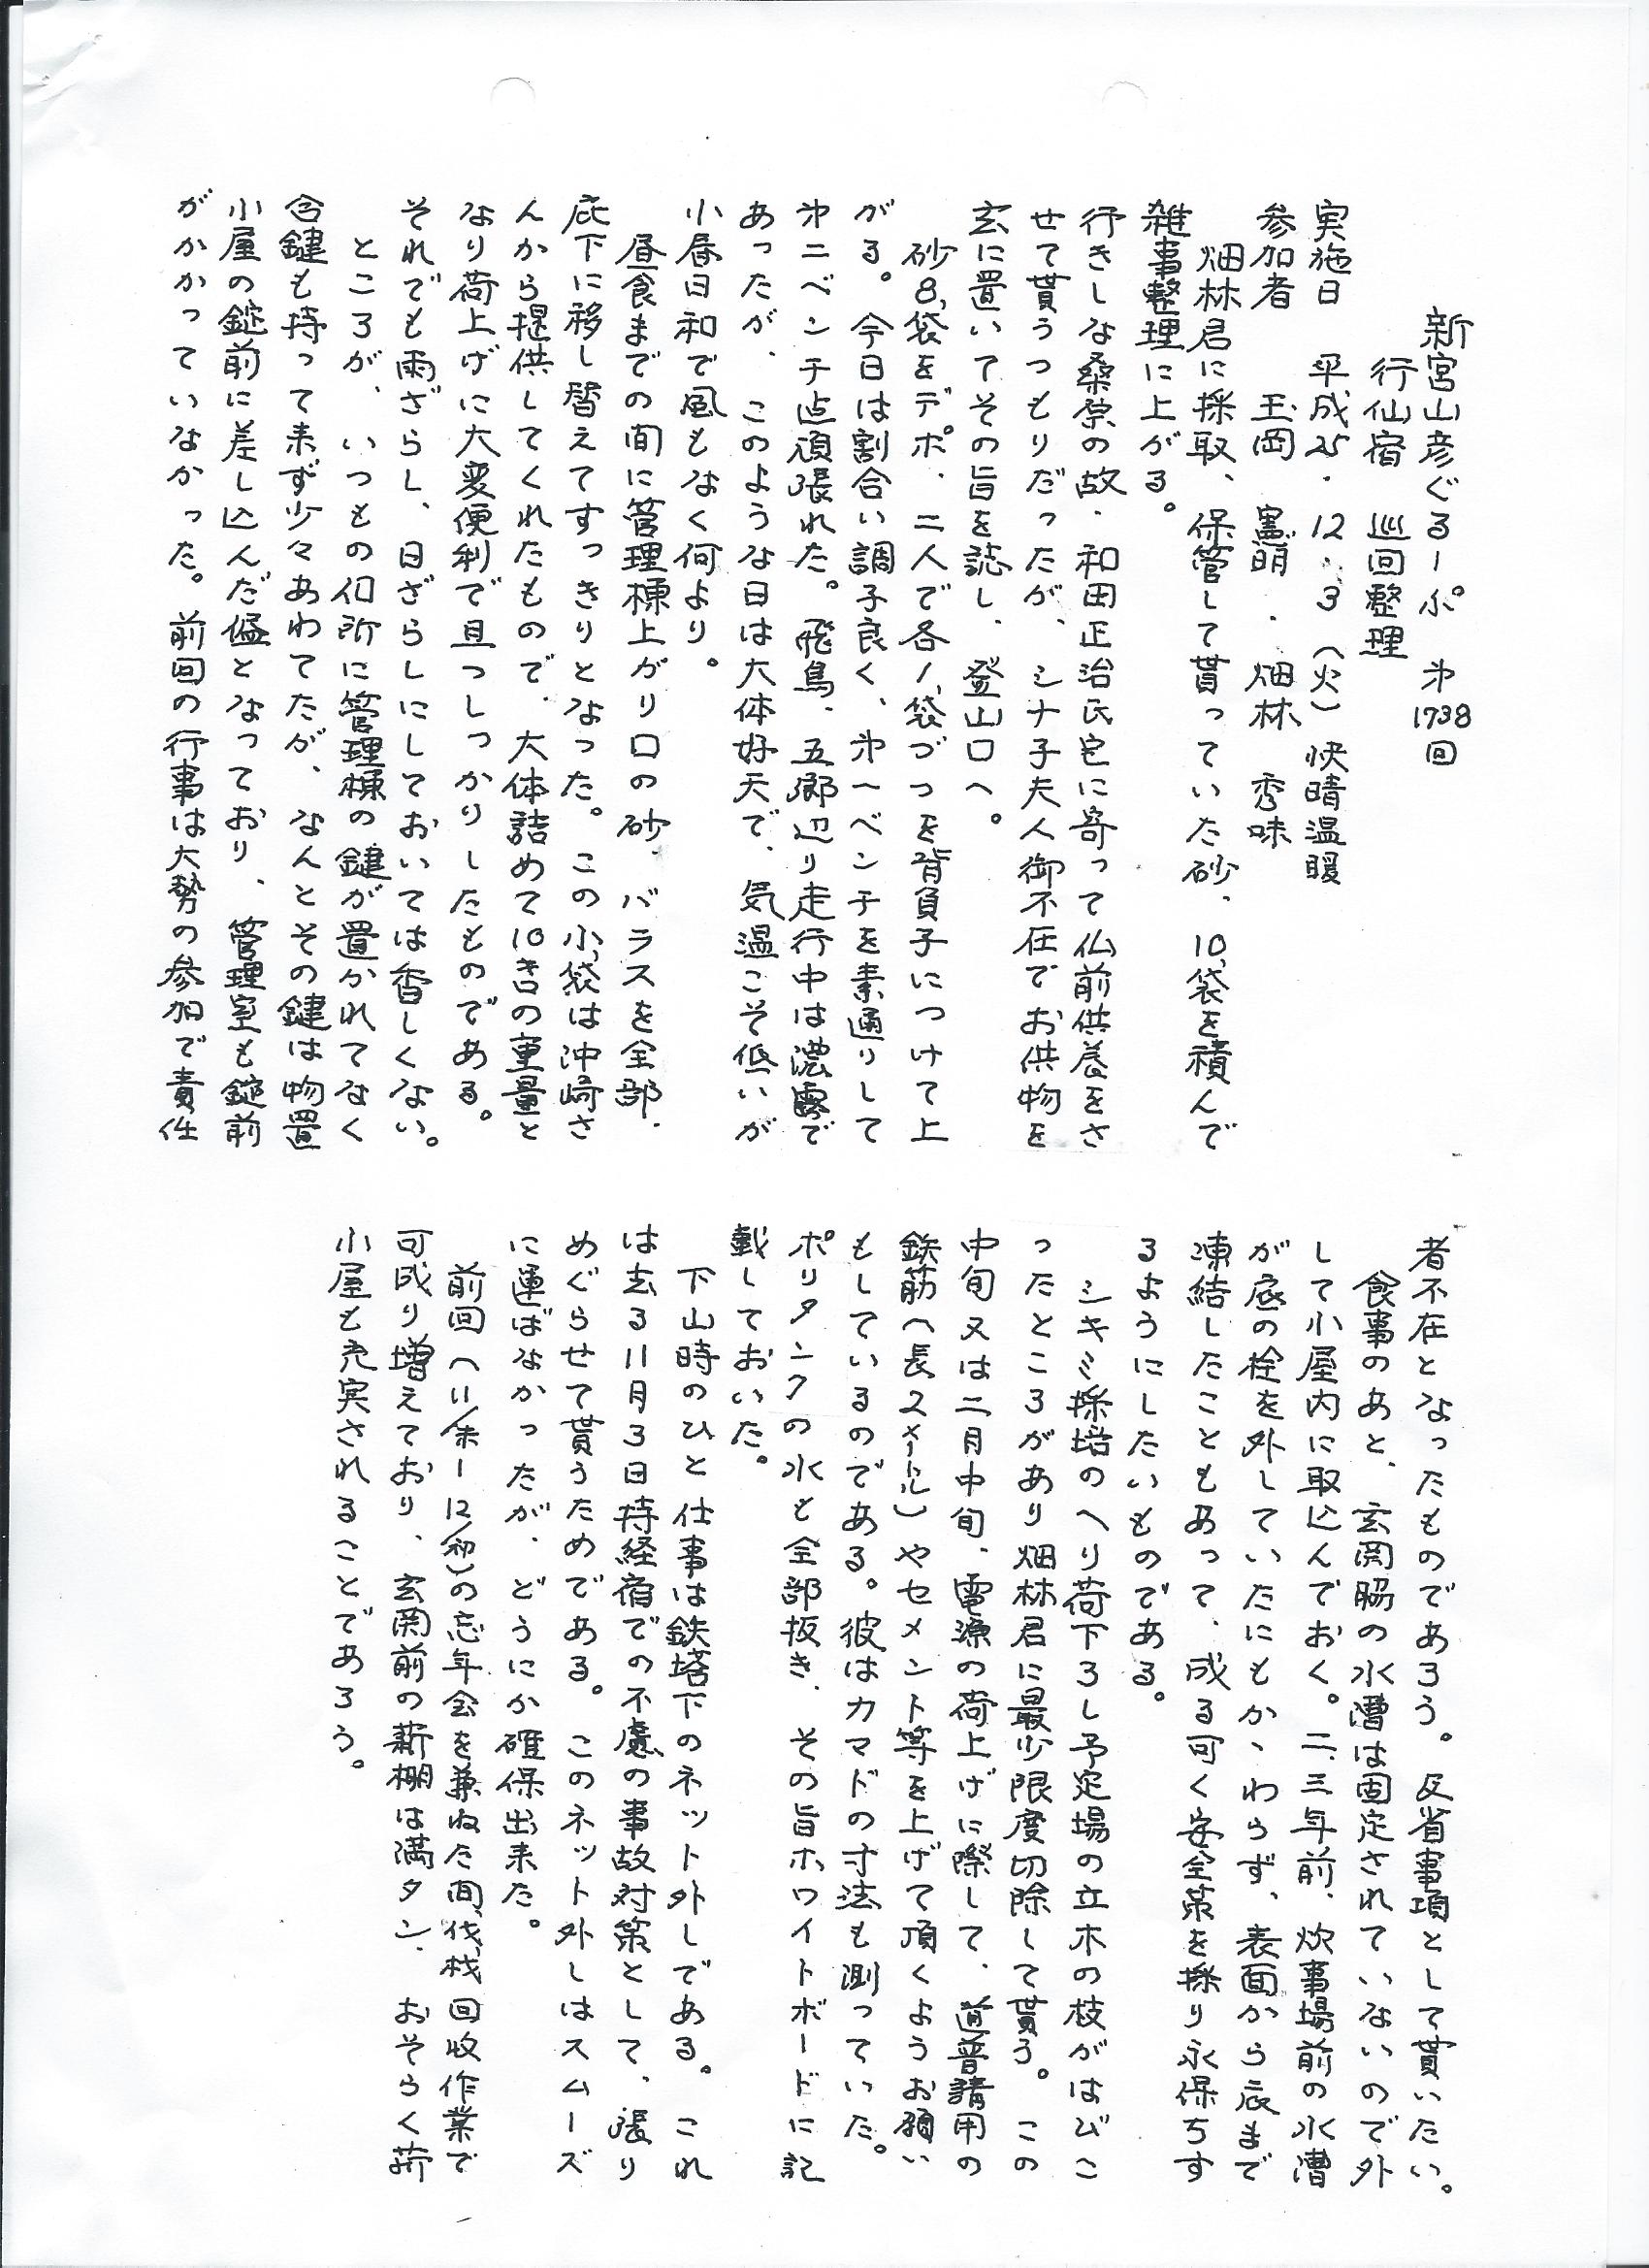 新宮山彦ぐるーぷ 第1738回
行仙宿 巡回整理
実施日 平成25.12.3(火)快晴温暖
参加者 玉岡 憲明.畑林 秀味
畑林君に採取、保管して貰っていた砂、10袋を積んで
雑事整理に上がる。
行きしな桑原の故.和田正治氏宅に寄って仏前供養をさ
せて貰うつもりだったが、シナ子夫人御不在でお供物を
玄に置いてその旨を誌し、登山口へ。
砂8袋をデポ、二人で各1袋づつを背負子につけて上
がる。今日は割合い調子良く、第一ベンチを素通りして
第二ベンチ迄頑張れた。飛鳥、五郷辺り走行中は濃霧で
あったが、このような日は大体好天で、気温こそ低いが
小昼日和で風もなく何より。
昼食までの間に管理棟上がり口の砂、バラスを全部、
庇下に移し替えてすっきりとなった。この小袋は沖崎さ
んから提供してくれたもので、大体詰めて10キロの重量と
なり荷上げに大変便利で且つしっかりしたものである。
それでも雨ざらし、日ざらしにしておいては香しくない。
ところが、いつもの個所に管理棟の鍵が置かれてなく
合鍵も持って来ず少々あわてたが、なんとその鍵は物置
小屋の錠前に差し込んだ儘となっており、管理室も錠前
がかかっていなかった。前回の行事は大勢の参加で責任
者不在となったものであろう。反省事項として貰いたい。
食事のあと、玄関脇の水漕は固定されていないので外
して小屋内に取込んでおく。二、三年前、炊事場前の水漕
が底の栓を外していたにもかゝわらず、表面から底まで
凍結したこともあって、成る可く安全策を採り永保ちす
るようにしたいものである。
シキミ採培のヘリ荷下ろし予定場の立木の枝がはびこ
ったところがあり畑林君に最少限度切除して貰う。この
中旬又は二月中旬、電源の荷上げに際して、道普請用の
鉄筋(長2メートル)やセメント等を上げて頂くようお願い
もしているのである。彼はカマドの寸法も測っていた。
ポリタンクの水も全部抜き、その旨ホワイトボードに記
載しておいた。
下山時のひと仕事は鉄塔下のネット外しである。これ
は去る11月3日持経宿での不慮の事故対策として、張り
めぐらせて貰うためである。このネット外しはスムーズ
に運ばなかったが、どうにか確保出来た。
前回(11/末ー12/初)の忘年会を兼ねた間伐材回収作業で
可成り増えており、玄関前の薪棚は満タン、おそらく薪
小屋も充実されることであろう。